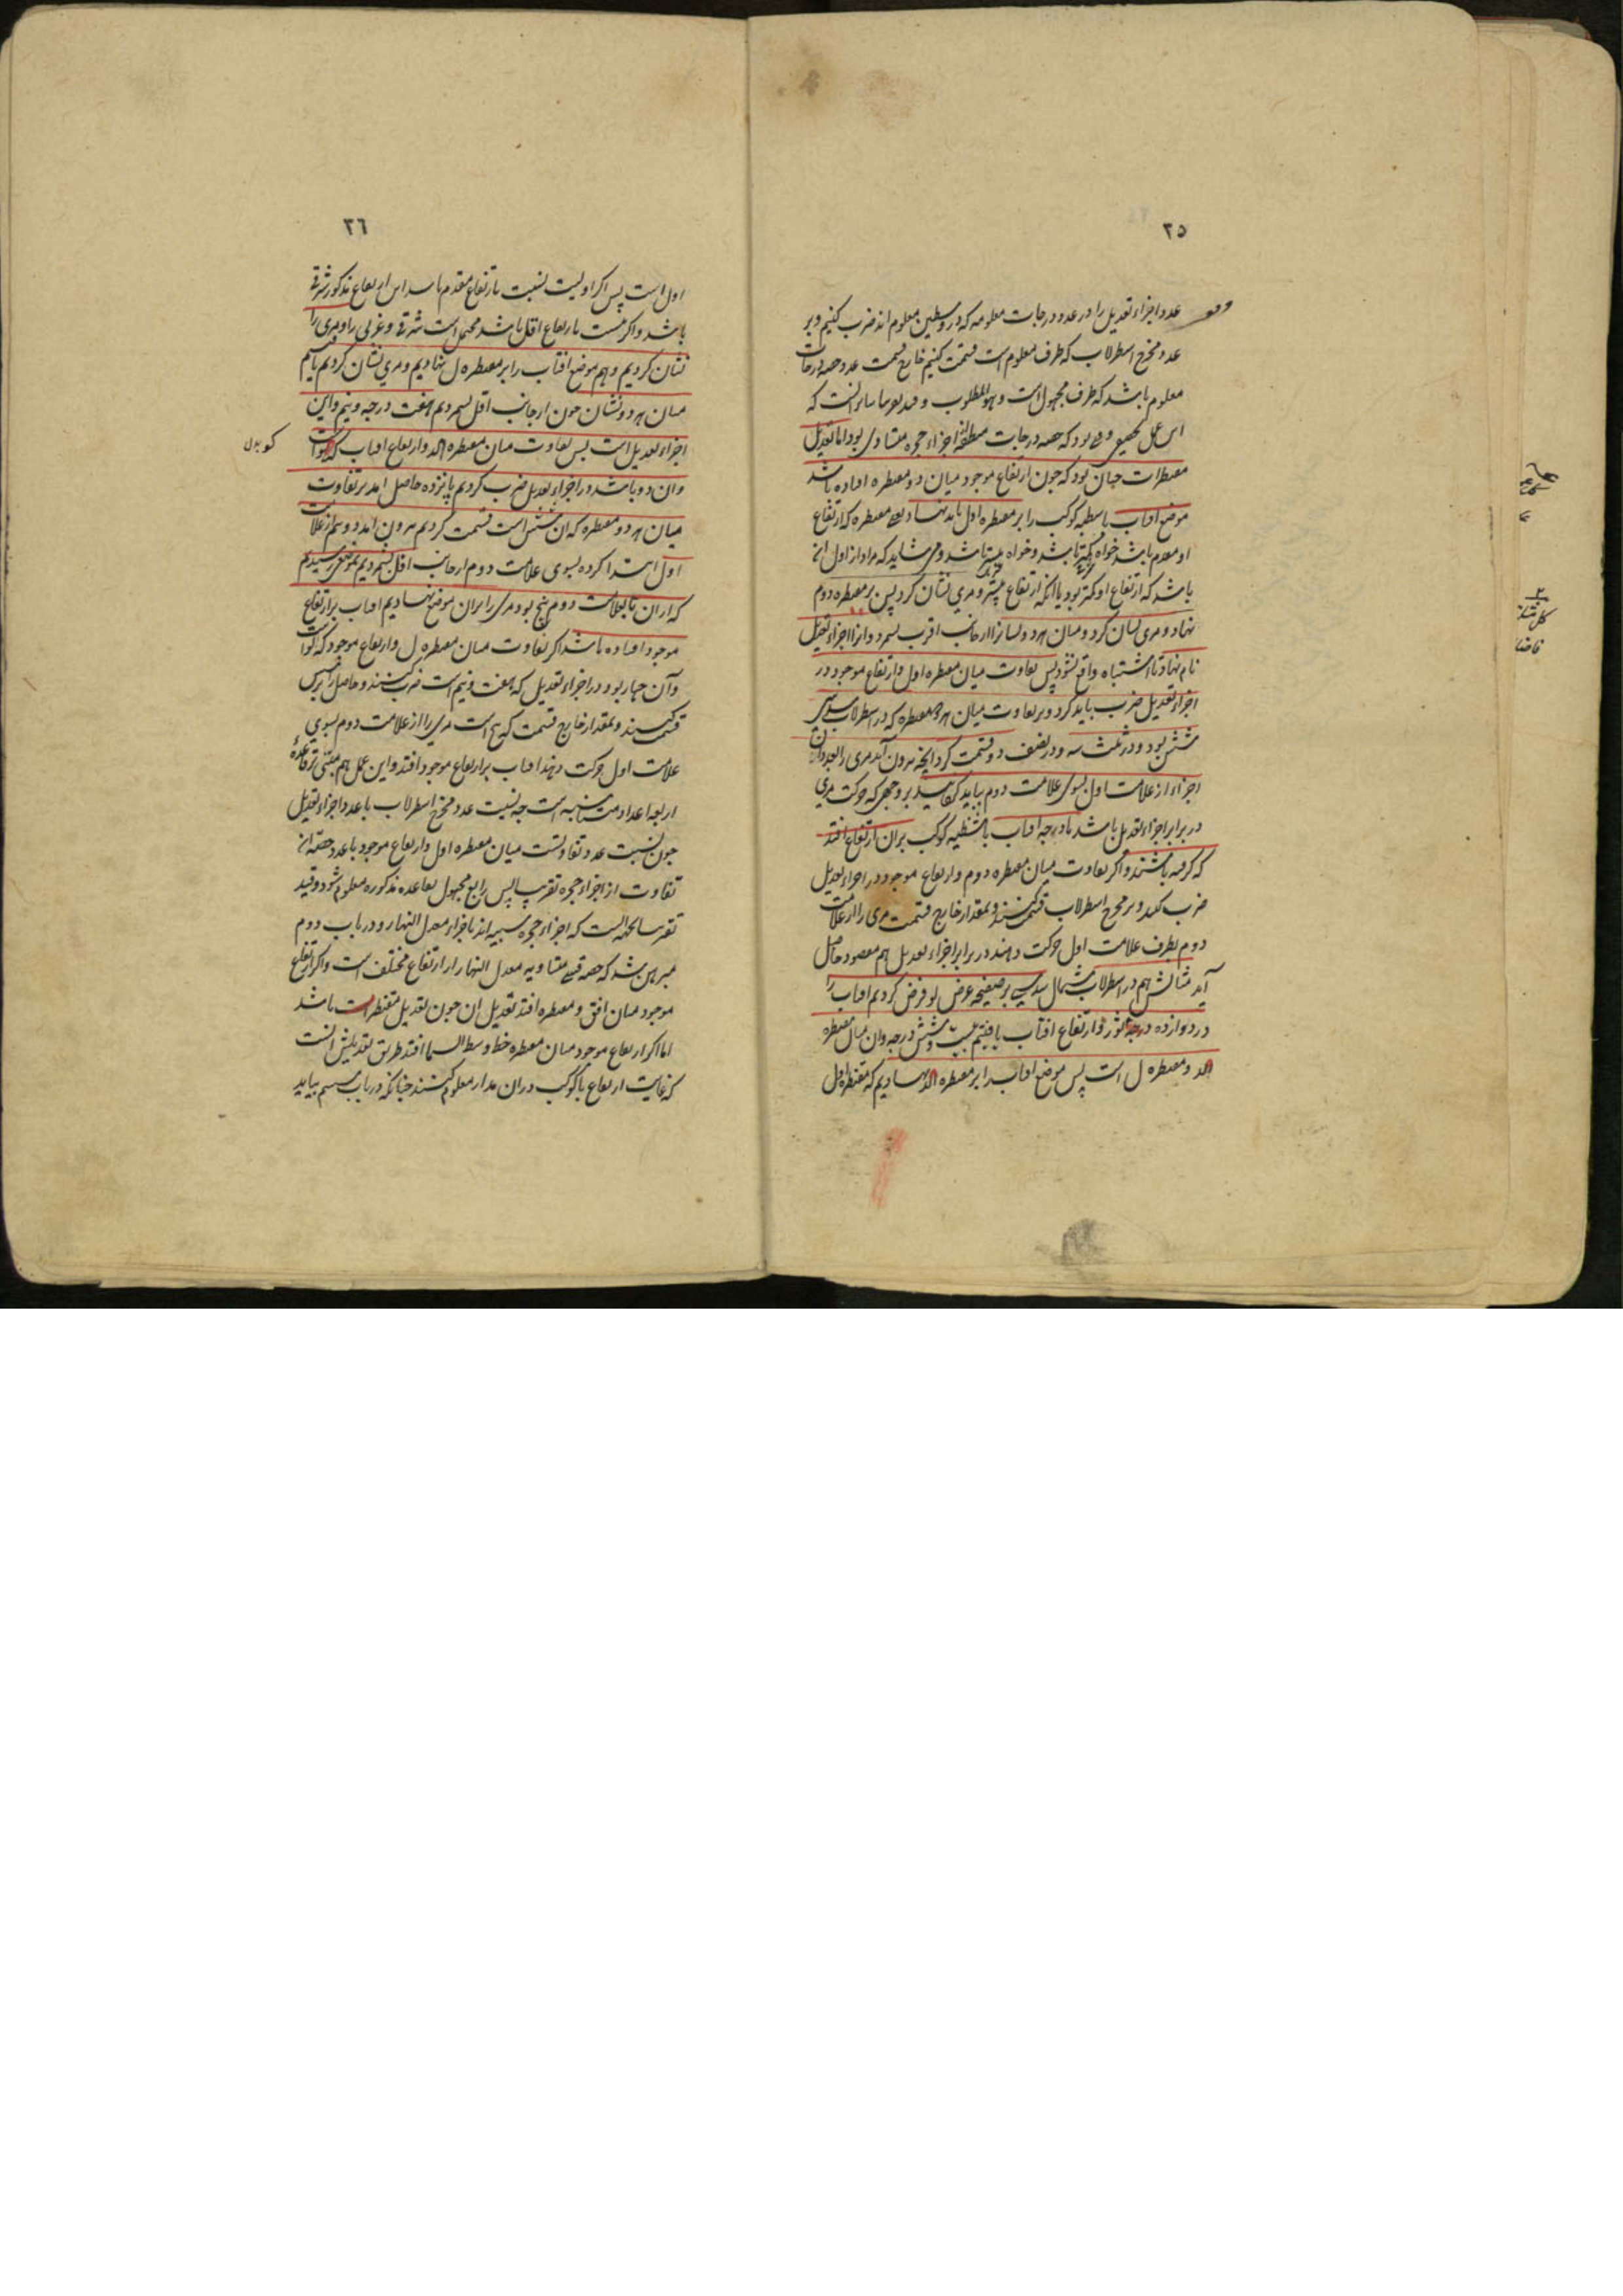 ٢٥
عدد اجزاء تعدیل را در عدد درجات معلومه که در وسطین معلوم اند ضرب کنیم و بر
عدد مخرج اسطرلاب که طرف معلوم است قسمت کنیم خارج قسمت عدد حصه درجات
معلوم باشد که طرف مجهول است و هو المطلوب و قید تقریبا برانست که
این عمل تحقیقی وقتی بود که حصه درجات منطقه از اجزاء حجره متساوی بود اما تعدیل
مقنطرات چنان بود که چون ارتفاع موجود میان دو مقنطره افتاده باشد
موضع آفتاب یا شظیه کوکب را بر مقنطره اول باید نهاد یعنی مقنطره که ارتفاع
او مقدم باشد خواه کمتر باشد و خواه بیشتر باشد و می شاید که مراد از اول آن
باشد که ارتفاع او کمتر بود یا آنکه ارتفاع بیشتر و مری نشان کرد پس بر مقنطره دوم
نهاد و مری نشان کرد و میان هر دو نشان از جانب اقرب شمرد و آنرا اجزاء تعدیل
نام نهاد تا اشتباه واقع نشود پس تفاوت میان مقنطره اول و ارتفاع موجود در
اجزاء تعدیل ضرب باید کرد و بر تفاوت میان هر دو مقنطره که در اسطرلاب سدسی
شش بود و در ثلث سه و در نصف دو قسمت کرد آنچه بیرون آید مری را بعدد آن
اجزاء از علامت اول بسوی علامت دوم بباید گردانید بر وجهی که حرکت مری
در برابر اجزاء تعدیل باشد تا درجه آفتاب یا شظیه کوکب بران ارتفاع افتد
که گرفته باشند و اگر تفاوت میان مقنطره دوم و ارتفاع موجود در اجزاء تعدیل
ضرب کنند و بر مخرج اسطرلاب قسمت کنند و بمقدار خارج قسمت مری را از علامت
دوم بطرف علامت اول حرکت دهند در برابر اجزاء تعدیل هم مقصود حاصل
آید مثالش هم در اسطرلاب شمالی سدسی بر صفیحه عرض لو فرض کردیم آفتاب را
در دوازده درجه ثور و ارتفاع آفتاب یافتیم بیست و شش درجه و آن میان مقنطره
الد و مقنطره ل است پس موضع آفتاب را بر مقنطره الد نهادیم که مقنطره اول
٢٦
اول است پس اگر اولیت نسبت بارتفاع مقدم باشد این ارتفاع مذکور شرقی
باشد و اگر نسبت بارتفاع اقل باشد محتمل است شرقی و غربی را و مری را
نشان کردیم و هم موضع آفتاب را بر مقنطره ل نهادیم و مری نشان کردیم یافتیم
میان هر دو نشان چون از جانب اقل شمردیم هفت درجه و نیم و این
اجزاء تعدیل است پس تفاوت میان مقنطره الد و ارتفاع آفتاب که کو است
و آن دو باشد در اجزاء تعدیل ضرب کردیم پانزده حاصل آمد بر تفاوت
میان هر دو مقنطره که آن شش است قسمت کردیم بیرون آمد دو و نیم از علامت
اول ابتدا کرده بسوی علامت دوم از جانب اقل شمردیم بموضعی رسیدیم
که از ان تا بعلامت دوم پنج بود مری را بران موضع نهادیم آفتاب بر ارتفاع
موجود افتاده باشد اگر تفاوت میان مقنطره ل و ارتفاع موجود که کو است
و آن چهار بود در اجزاء تعدیل که هفت و نیم است ضرب کنند و حاصل را بر شش
قسمت کنند و بمقدار خارج قسمت که پنج است مری را از علامت دوم بسوی
علامت اول حرکت دهند آفتاب بر ارتفاع موجود افتد و این عمل هم مبتنی بر قاعده
اربعه اعداد متناسبه است چه نسبت عدد مخرج اسطرلاب با عدد اجزاء تعدیل
چون نسبت عدد تفاوتست میان مقنطره اول و ارتفاع موجود با عدد حصه آن
تفاوت از اجزاء حجره تقریبا پس رابع مجهول بقاعده مذکوره معلوم شود و قید
تقریبا بجهت آنست که اجزاء حجره شبیه اند باجزاء معدل النهار و در باب دوم
مبرهن شد که حصه قسی متساویه معدل النهار از ارتفاع مختلف است و اگر ارتفاع
موجود میان افق و مقنطره افتد تعدیل آن چون تعدیل مقنطرات باشد
اما اگر ارتفاع موجود میان مقنطره و خط وسط السما افتد طریق تعدیلش آنست
که غایت ارتفاع یا کوکب در ان مدار معلوم کنند چنانکه در باب سیم بیاید
کو بدل